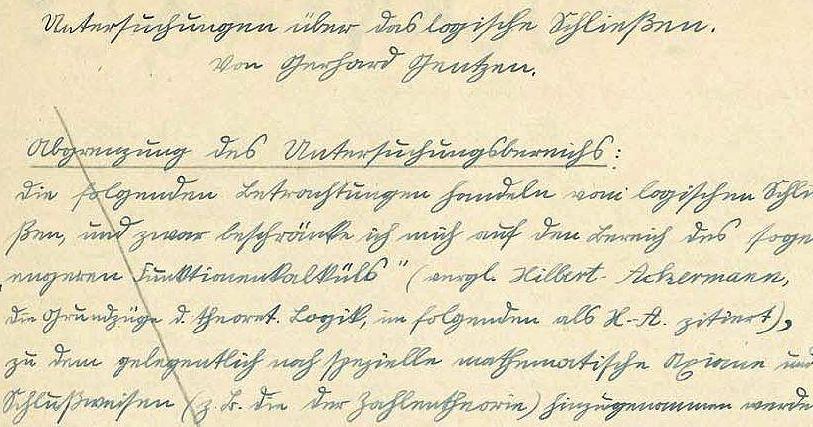 Untersuchungen über das logische Schließen.
Von Gerhard Gentzen.
Abgrenzung des Untersuchungsbereichs:
Die folgenden Betrachtungen handeln vom logischen Schli
ßen, und zwar beschränke ich mich auf den Bereich des soge
„engeren Funktionenkalküls" (vergl. Hilbert-Ackermann,
Die Grundzüge d. theoret. Logik, im folgenden als H.-A. zitiert),
zu dem gelegentlich noch spezielle mathematische Axiome und
Schlußweisen (z. B. die der Zahlentheorie) hinzugenommen werde